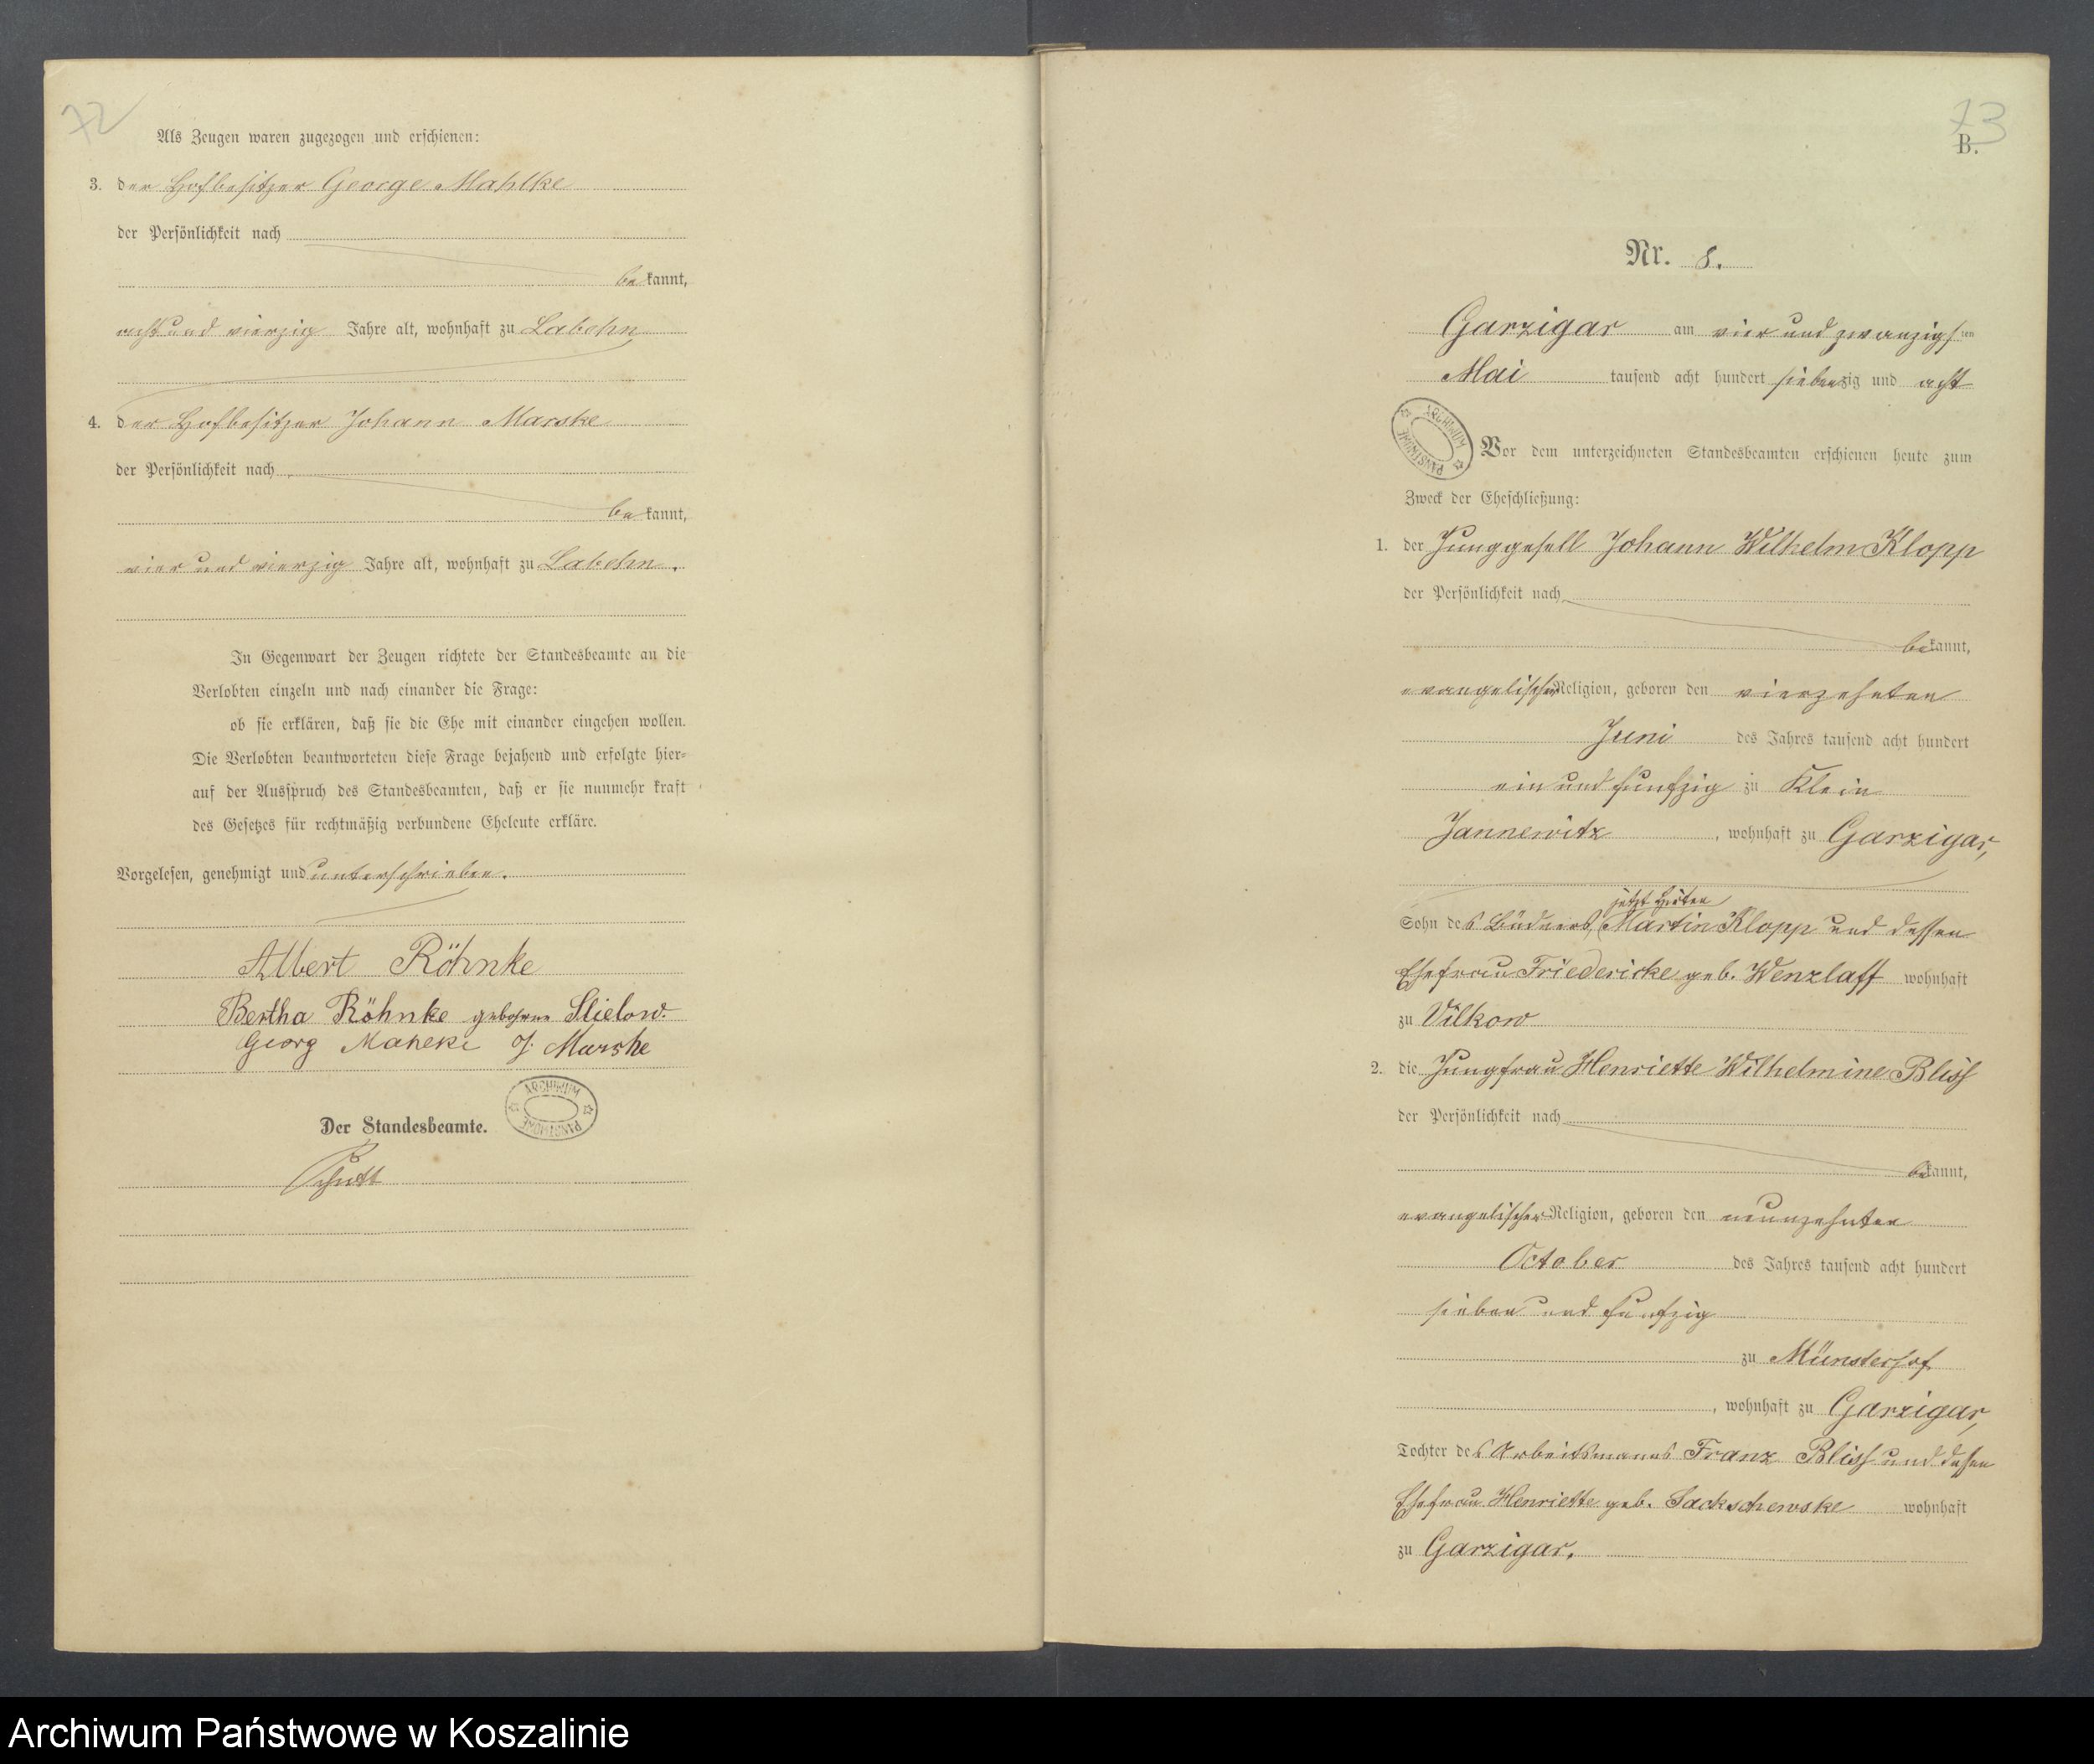 72
Als Zeugen waren zugezogen und erschienen:
3. der Hofbesitzer George Mahlke
der Persönlichkeit nach
bekannt,
acht und vierzig Jahre alt, wohnhaft zu Labehn
4. der Hofbesitzer Johann Marske
der Persönlichkeit nach
bekannt,
vier und vierzig Jahre alt, wohnhaft zu Labehn.
In Gegenwart der Zeugen richtete der Standesbeamte an die
Verlobten einzeln und nach einander die Frage:
ob sie erklären, daß sie die Ehe mit einander eingehen wollen.
Die Verlobten beantworteten diese Frage bejahend und erfolgte hier-
auf der Ausspruch des Standesbeamten, daß er sie nunmehr kraft
des Gesetzes für rechtmäßig verbundene Eheleute erkläre.
Vorgelesen, genehmigt und unterschrieben.
Albert Röhnke
Bertha Röhnke geborene Stielow.
Georg Mahlke J. Marske
ARCHIWUM PAŃSTWOWE
Der Standesbeamte.
73
B.
Nr. 8.
Garzigar am vier und zwanzigsten
Mai tausend acht hundert siebenzig und acht
ARCHIWUM PAŃSTWOWE
Vor dem unterzeichneten Standesbeamten erschienen heute zum
Zweck der Eheschließung:
1. der Junggesell Johann Wilhelm Klopp
der Persönlichkeit nach
bekannt,
evangelischer Religion, geboren den vierzehnten
Juni des Jahres tausend acht hundert
ein und funfzig zu Klein
Jannewitz, wohnhaft zu Garzigar,
jetzt Hirten
Sohn des Büdners, Martin Klopp und dessen
Ehefrau Friedericke geb. Wenzlaff wohnhaft
zu Vilkow
2. die Jungfrau Henriette Wilhelmine Bliss
der Persönlichkeit nach
bekannt,
evangelischer Religion, geboren den neunzehnten
October des Jahres tausend acht hundert
sieben und funfzig
zu Münsterhof
, wohnhaft zu Garzigar,
Tochter des Arbeitsmanns Franz Bliss und dessen
Ehefrau Henriette geb. Sackschewske wohnhaft
zu Garzigar.
Archiwum Państwowe w Koszalinie